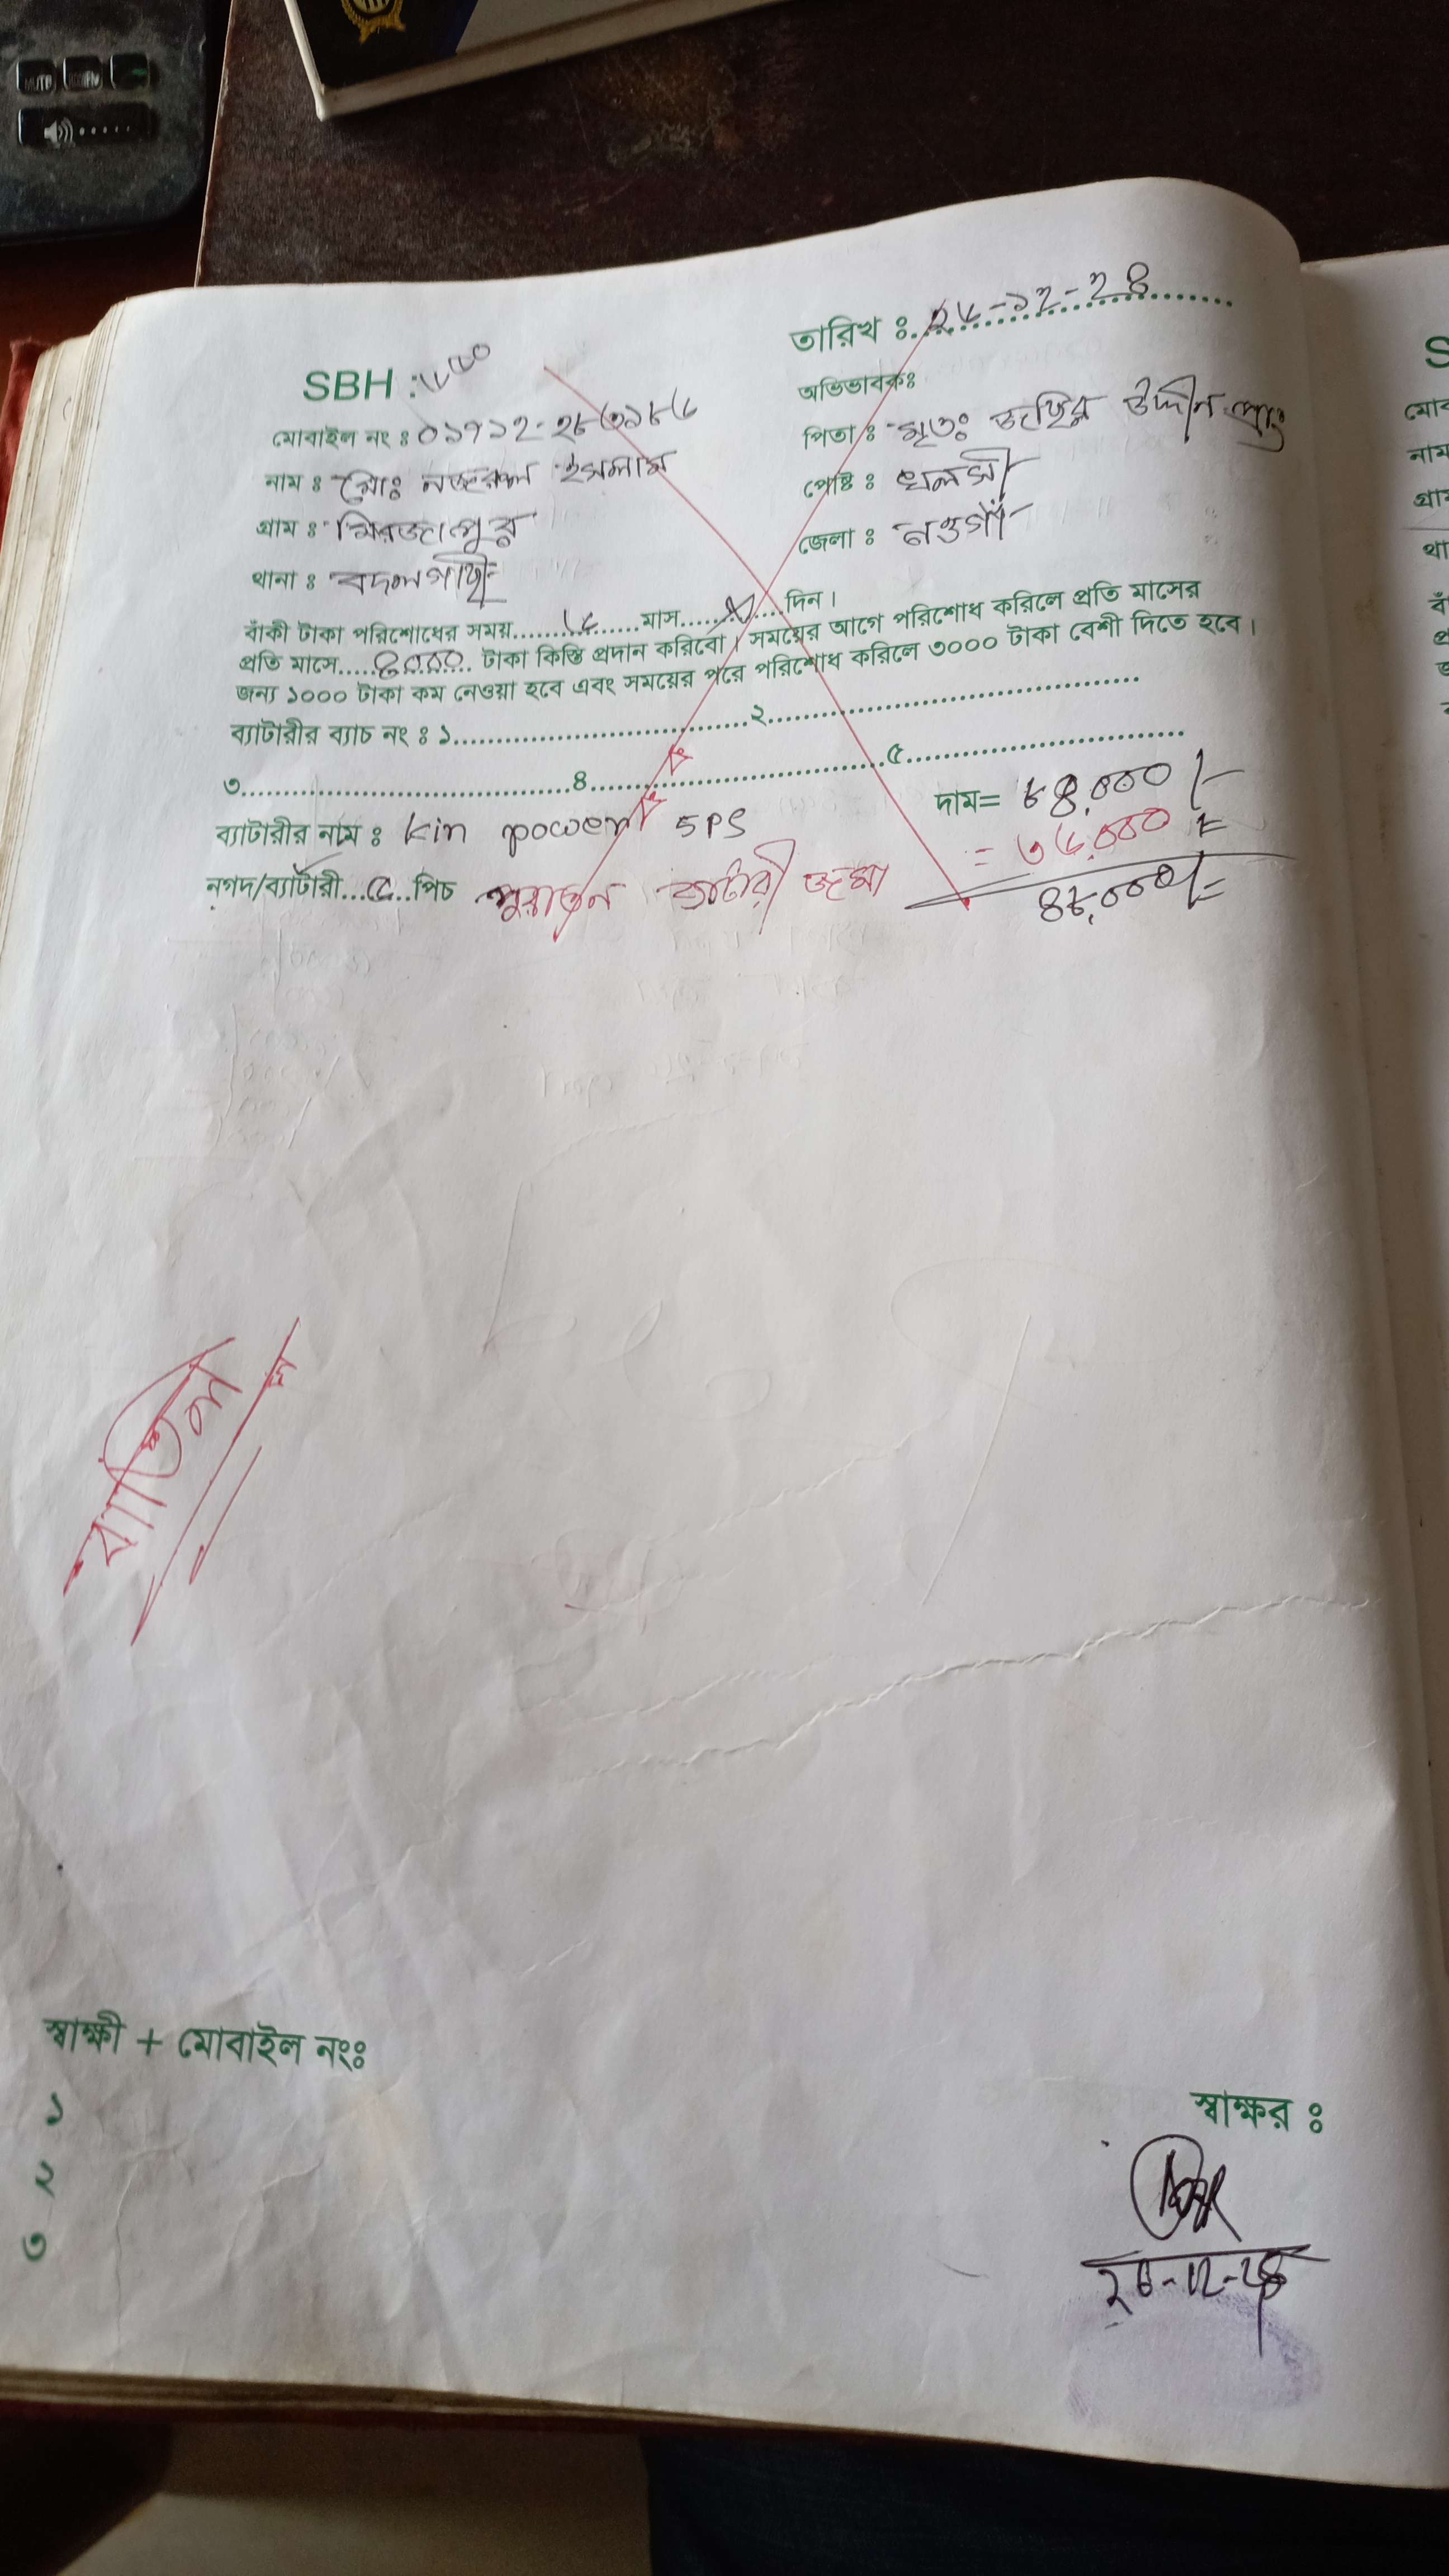 তারিখ ঃ ২৬-১২-২৪
SBH : ৬৬০
মোবাইল নং ঃ
নাম ঃ মোঃ নজরুল ইসলাম
গ্রাম ঃ মিরজাপুর
থানা ঃ বদলগাছী
অভিভাবকঃ
পিতা ঃ মৃতঃ উদ্দীন
পোষ্ট ঃ খলসী
জেলা ঃ নওগাঁ
বাঁকী টাকা পরিশোধের সময়......৬......মাস......X......দিন।
প্রতি মাসে.....৪০০০..... টাকা কিস্তি প্রদান করিবো। সময়ের আগে পরিশোধ করিলে প্রতি মাসের
জন্য ১০০০ টাকা কম নেওয়া হবে এবং সময়ের পরে পরিশোধ করিলে ৩০০০ টাকা বেশী দিতে হবে।
ব্যাটারীর ব্যাচ নং ঃ ১..............................২..............................
৩..............................৪..............................৫..............................
ব্যাটারীর নাম ঃ kin power 5ps
দাম= ৮৪,০০০/-
= ৩৬,০০০/=
৪৮,০০০/=
নগদ/ব্যাটারী...৫...পিচ পুরাতন ব্যাটারী জমা
বাতিল
স্বাক্ষী + মোবাইল নংঃ
১
২
৩
স্বাক্ষর ঃ